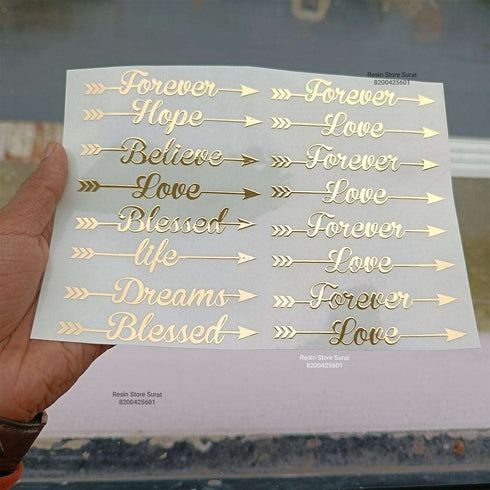 Resin Store Surat
8200425601
Forever
Hope
Believe
Love
Blessed
life
Dreams
Blessed
Forever
Love
Forever
Love
Forever
Love
Forever
Love
Resin Store Surat
8200425601
Resin Store Surat
8200425601